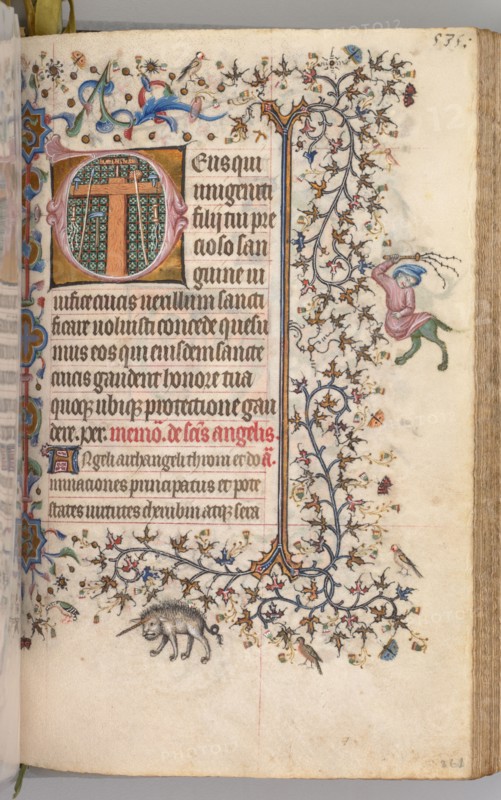 535.
Deus qui
unigeniti
filij tui pre
cioso san
guine ui
uifice crucis uexillum sancti
ficare uoluisti concede quesu
mus eos qui eiusdem sancte
crucis gaudent honore tua
quoqȝ ubiqȝ protectione gau
dere. per. memō. de scīs angelis.
Angeli archangeli throni et do ā.
minaciones principatus et pote
states uirtutes cherubin atqȝ sera
268
PHOTO12